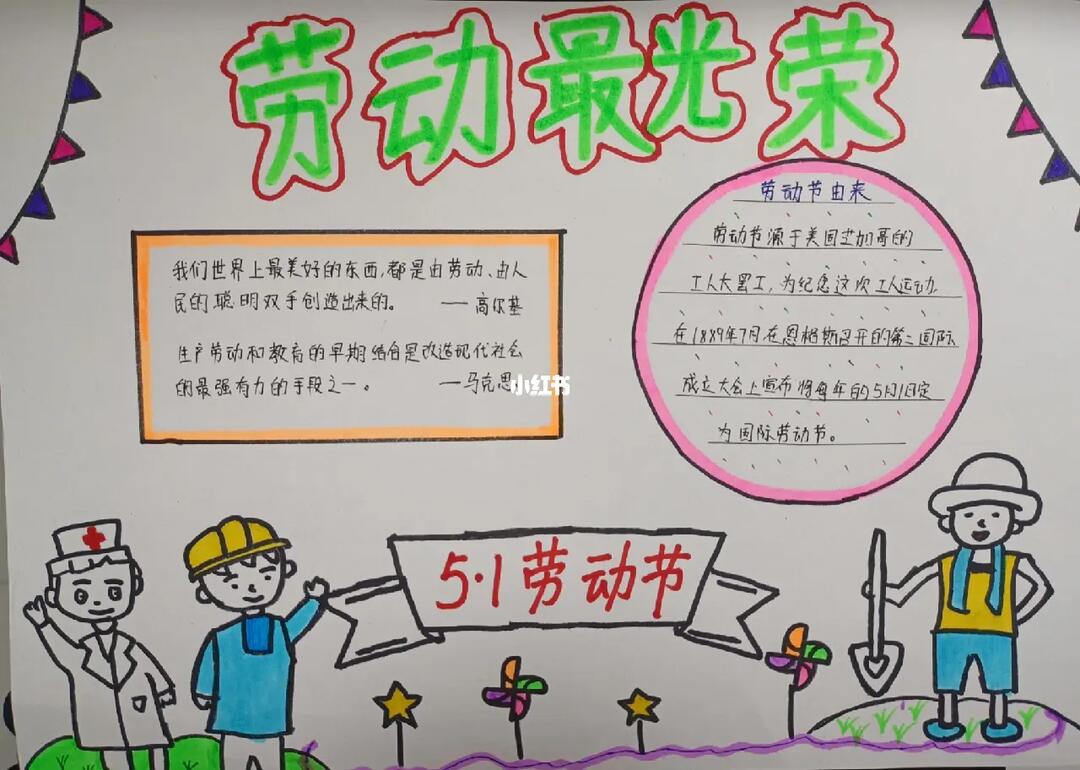 劳动最光荣
我们世界上最美好的东西,都是由劳动、由人
民的聪明双手创造出来的。 ——高尔基
生产劳动和教育的早期结合是改造现代社会
的最强有力的手段之一。 —马克思
小红书
劳动节由来
劳动节源于美国芝加哥的
工人大罢工,为纪念这次工人运动.
在1889年7月在恩格斯召开的第二国际
成立大会上宣布将每年的5月1日定
为国际劳动节。
5·1劳动节